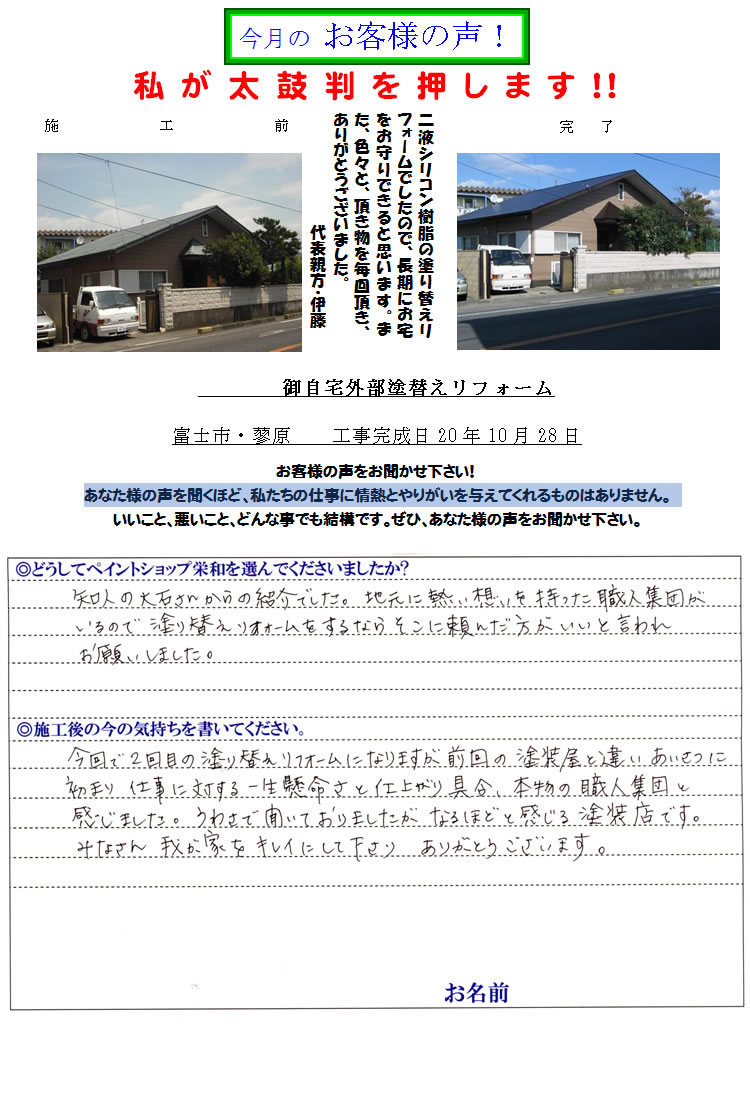 今月の お客様の声！
私が太鼓判を押します!!
施工前
二液シリコン樹脂の塗り替えリ
フォームでしたので、長期にお宅
をお守りできると思います。ま
た、色々と、頂き物を毎回頂き、
ありがとうございました。
代表親方・伊藤
完了
御自宅外部塗替えリフォーム
富士市・蓼原 工事完成日20年10月28日
お客様の声をお聞かせ下さい!
あなた様の声を聞くほど、私たちの仕事に情熱とやりがいを与えてくれるものはありません。
いいこと、悪いこと、どんな事でも結構です。ぜひ、あなた様の声をお聞かせ下さい。
◎どうしてペイントショップ栄和を選んでくださいましたか?
知人の大石さんからの紹介でした。地元に熱い想いを持った職人集団が
いるので塗り替えリフォームをするならそこに頼んだ方がいいと言われ
お願いしました。
◎施工後の今の気持ちを書いてください。
今回で2回目の塗り替えリフォームになりますが前回の塗装屋と違いあいさつに
初まり仕事に対する一生懸命さと仕上がり具合、本物の職人集団と
感じました。うわさで聞いておりましたがなるほどと感じる塗装店です。
みなさん我が家をキレイにして下さりありがとうございます。
お名前